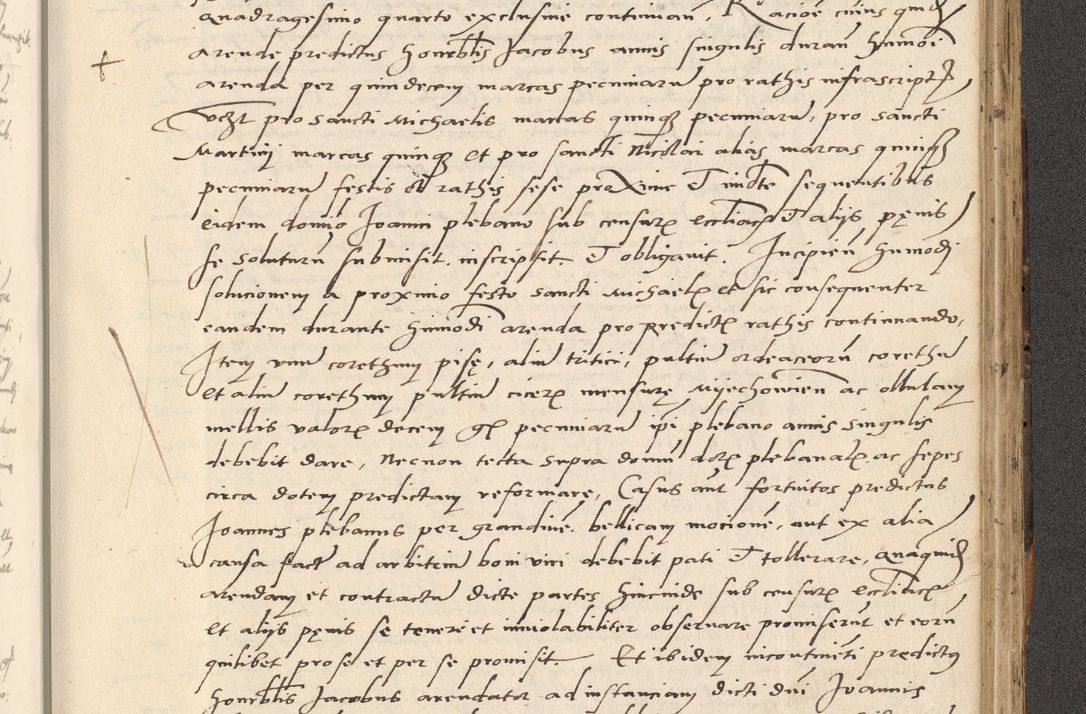 quadragesimo quarto exclusive continuan. Racioe cuius quid
arende predictus honorblis Jacobus annis singulis duran hmoi
arenda per quindecem marcas pecuniaru pro rathis infrascript
vczt pro sancti Michaelis marcas quinq pecuniaru, pro sancti
Martini marcas quinq et pro sancti Nicolai alias marcas quinq
pecuniaru festis et rathis sese proxime et imdte sequentibus
eidem domino Joanni plebano sub censur eccliac et aliis penis
se soluturu submisit. inscripsit. et obligavit. Incipien hmodi
solucionem a proximo festo sancti Michael et sic consequenter
eandem durante hmodi arenda pro predict rathis continuando.
Item unu corethum pise, aliu tritici, pultiu ordeaceoru corethu
et aliu corethum pultiu cicer mensure Myechowien ac ollulam
mellis valor decem gr pecuniaru ipi plebano annis singulis
debebit dare, Necnon tecta supra domu dot plebanal ac sepes
circa dotem predictam reformare, Casus aut fortuitos predictus
Joannes plebanus per grandine. bellicam mocione, aut ex alia
causa fact ad arbitriu boni viri debebit pati et tollerare, quaquid
arendam et contractu dicte partes hincinde sub censur eccliac
et aliis penis se tenere et inviolabiliter observare promiserut et eoru
quilibet pro se et per se promisit. Et ibidem incontineti predictus
honorblis Jacobus arendator ad instanciam dicti dni Joannis